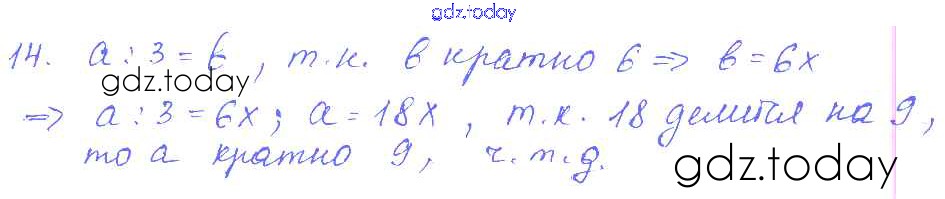 gdz.today
14. a : 3 = в, т.к. в кратно 6 => в = 6x
gdz.today
=> a : 3 = 6x; a = 18x, т.к. 18 делится на 9,
то a кратно 9, ч.т.д.
gdz.today